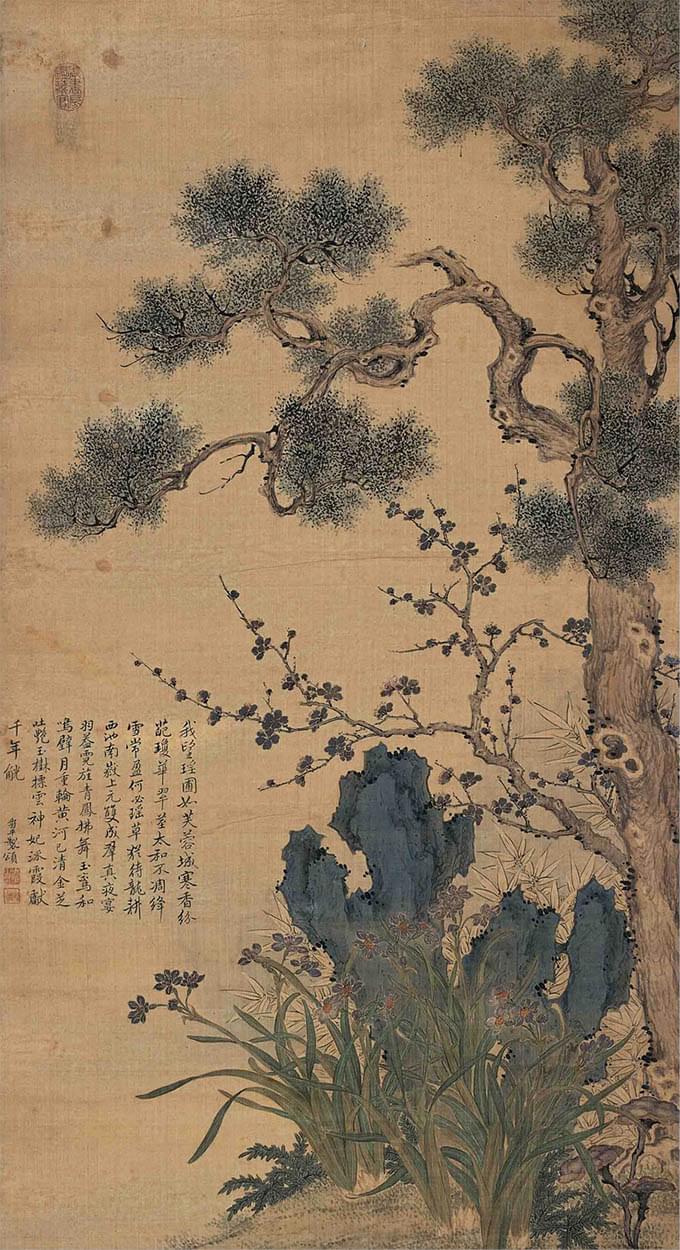 我望瑶圃如芙蓉城寒香紛
葩瓊華翠莖太和不凋絳
雪常盈何必瑶草待龍耕
西池南嶽上元雙成羣真夜宴
羽蓋霓旌青鳳拂舞玉鸞和
鳴璧月重輪黄河已清金芝
玉樹標雲神妃泳霞獻
千年觥
壽平製頌